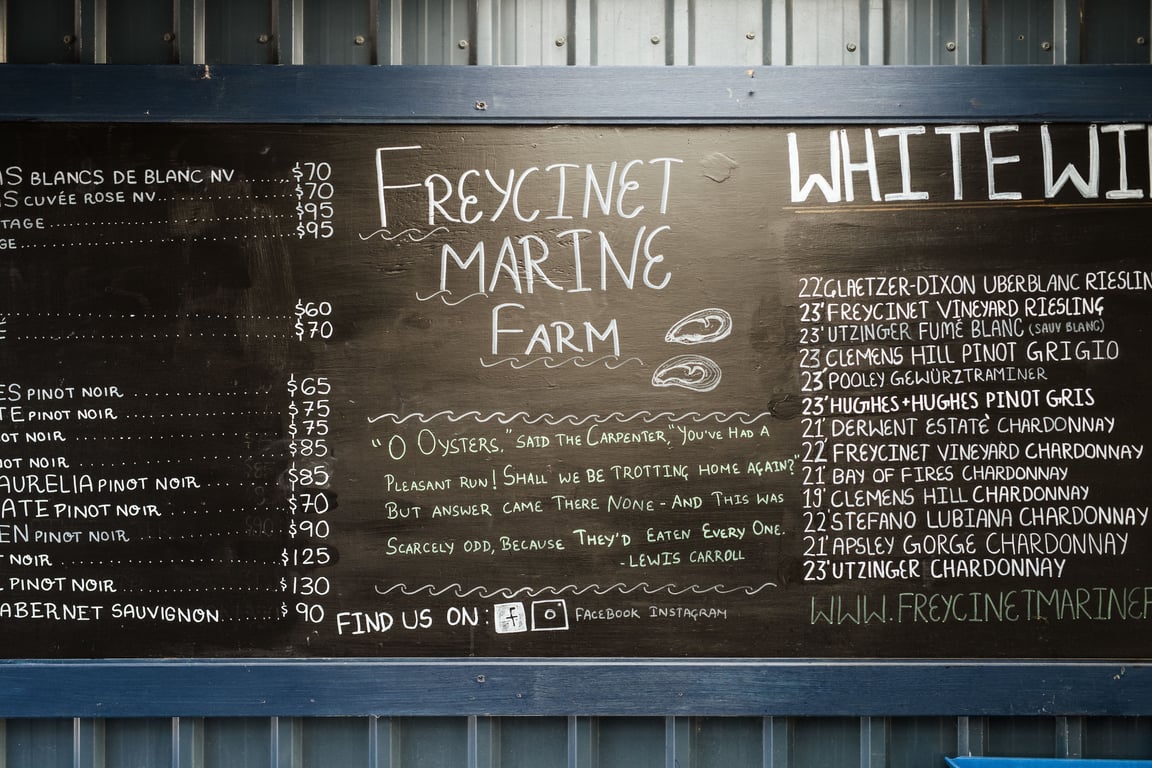 BLANCS DE BLANC NV ......$70
CUVÉE ROSE NV..............$70
$95
$95
$60
$70
PINOT NOIR $65
PINOT NOIR $75
NOIR $75
NOIR $85
AURELIA PINOT NOIR $85
PINOT NOIR $70
PINOT NOIR $90
NOIR $125
PINOT NOIR $130
CABERNET SAUVIGNON $90
FREYCINET
MARINE
FARM
"O OYSTERS," SAID THE CARPENTER, "YOU'VE HAD A
PLEASANT RUN! SHALL WE BE TROTTING HOME AGAIN?"
BUT ANSWER CAME THERE NONE - AND THIS WAS
SCARCELY ODD, BECAUSE THEY'D EATEN EVERY ONE.
- LEWIS CARROLL
FIND US ON: f FACEBOOK INSTAGRAM
WHITE WI
22' GLAETZER-DIXON UBERBLANC RIESLIN
23' FREYCINET VINEYARD RIESLING
23' UTZINGER FUMÉ BLANC (SAUV BLANC)
23 CLEMENS HILL PINOT GRIGIO
23' POOLEY GEWÜRZTRAMINER
23' HUGHES+HUGHES PINOT GRIS
21' DERWENT ESTATÈ CHARDONNAY
22' FREYCINET VINEYARD CHARDONNAY
21' BAY OF FIRES CHARDONNAY
19' CLEMENS HILL CHARDONNAY
22' STEFANO LUBIANA CHARDONNAY
21' APSLEY GORGE CHARDONNAY
23' UTZINGER CHARDONNAY
WWW.FREYCINETMARINEF